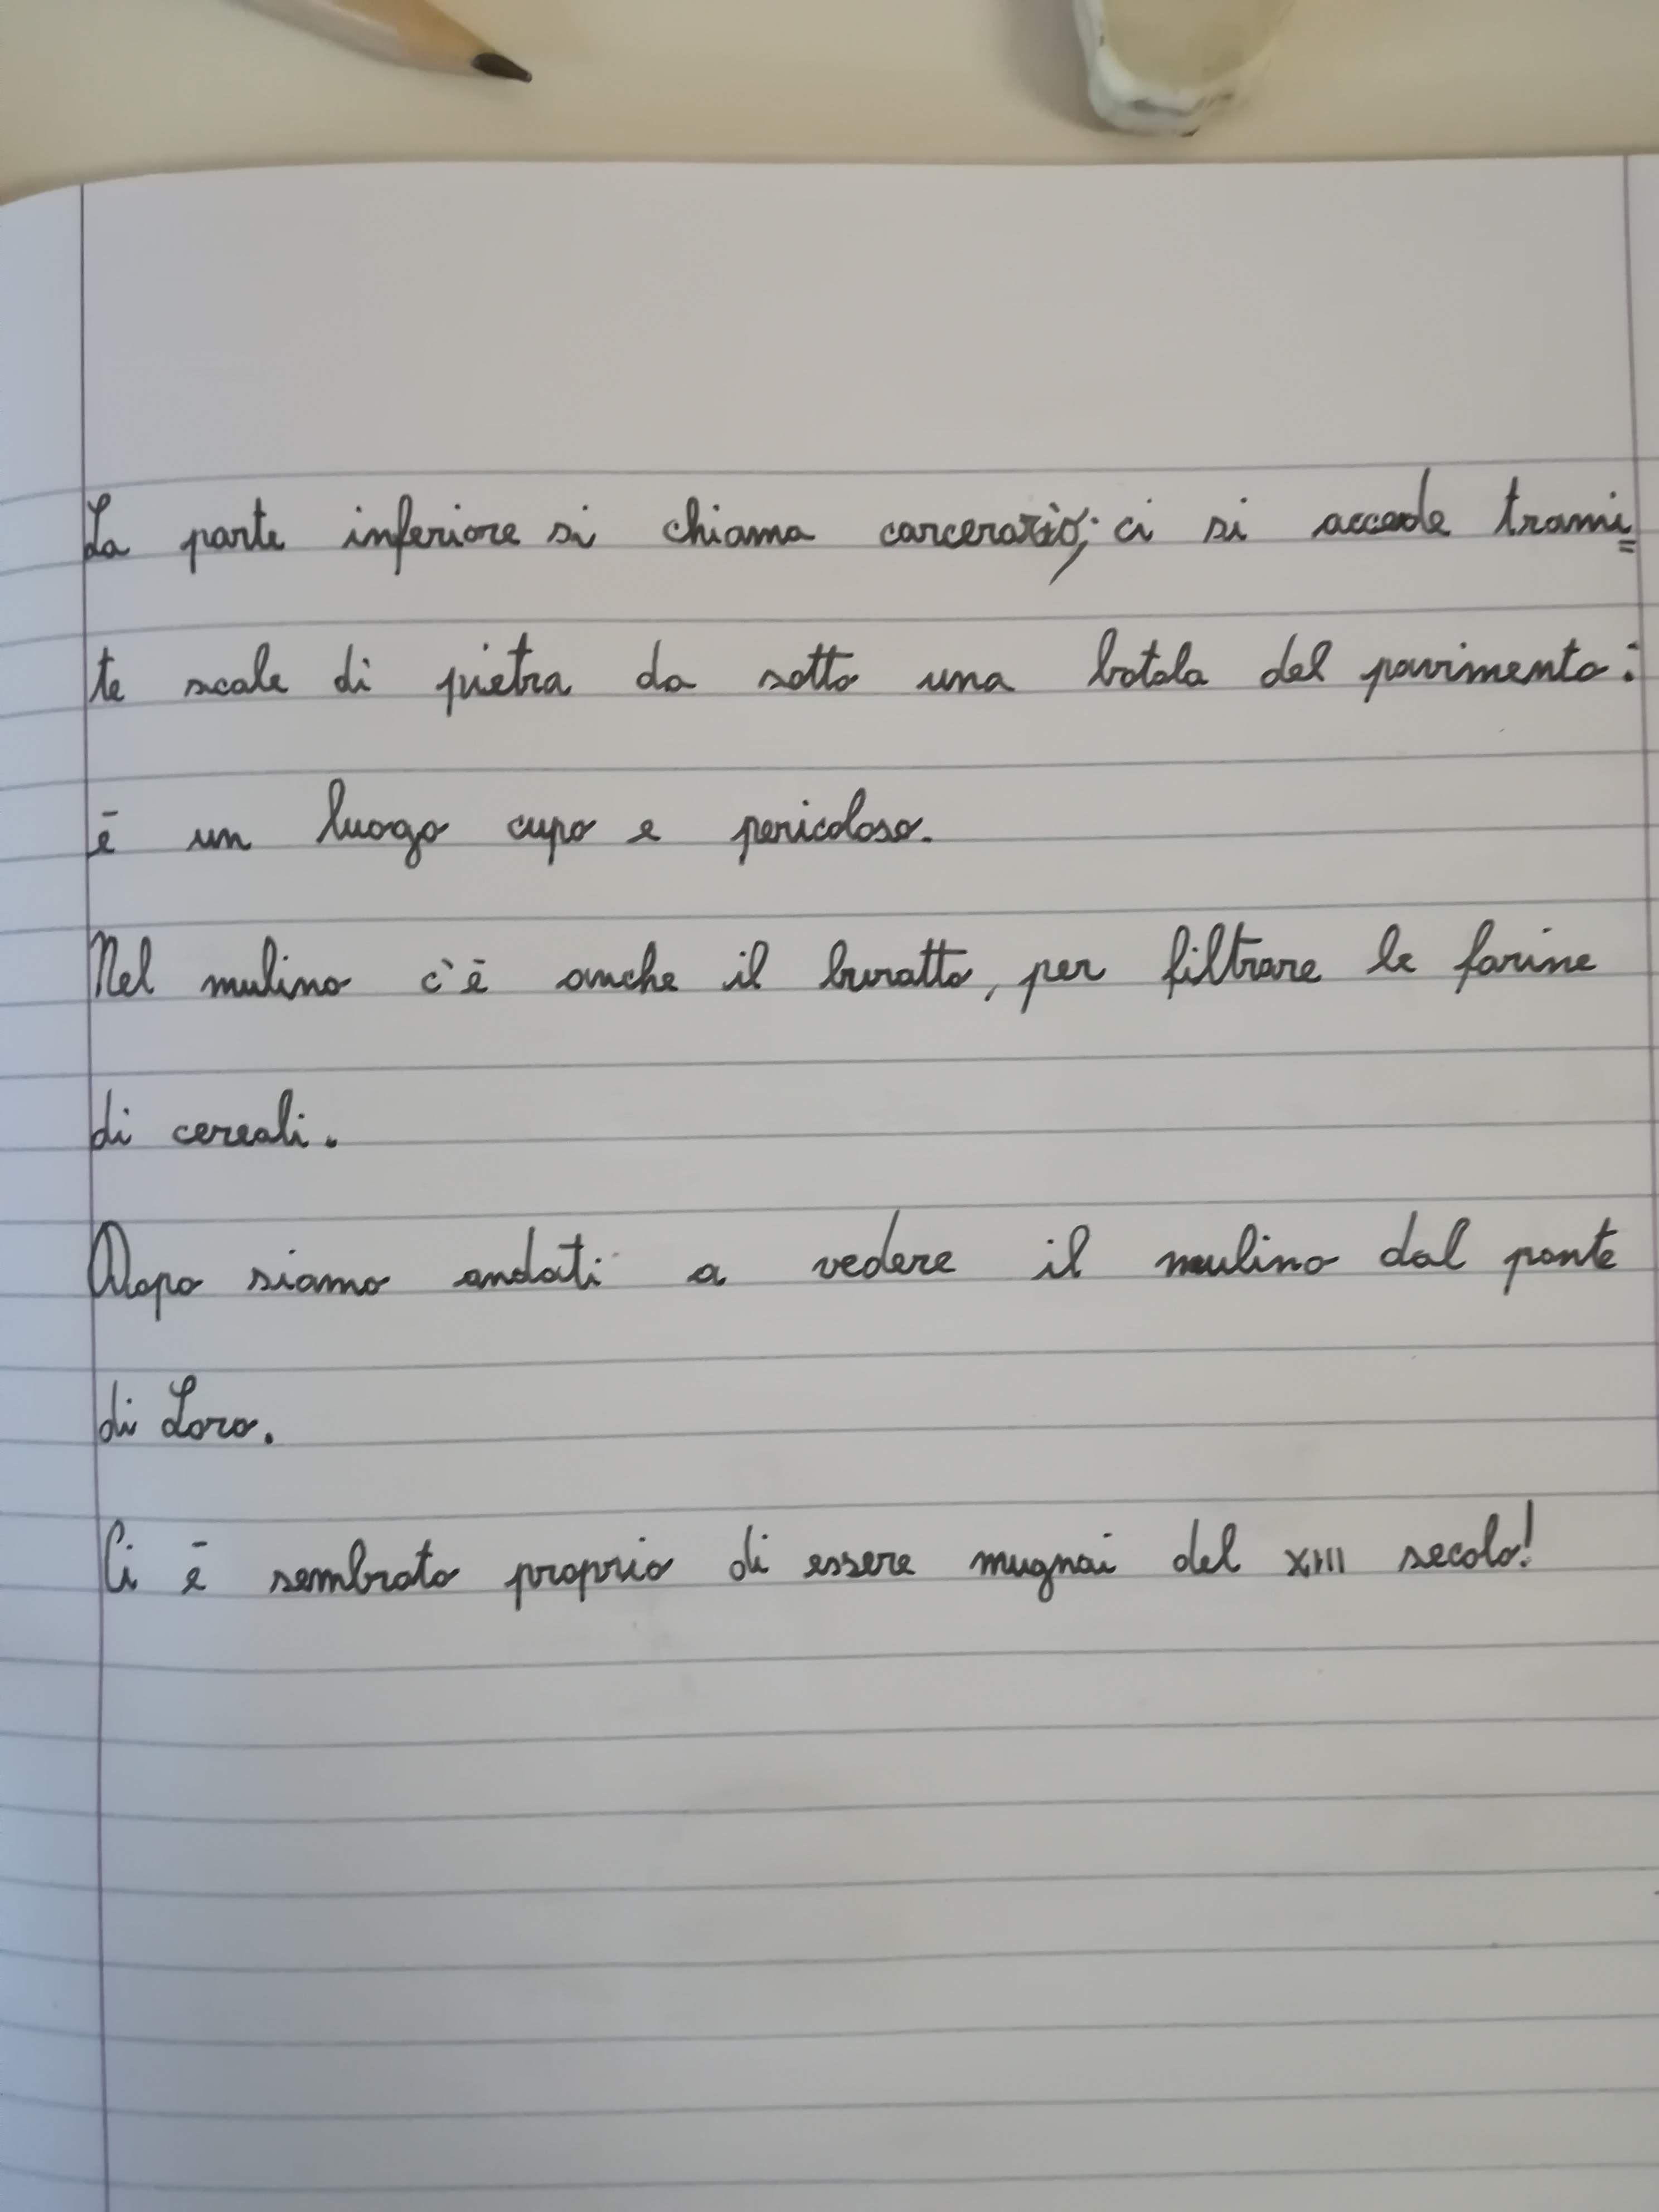 La parte inferiore si chiama carcerario; ci si accede trami=
te scale di pietra da sotto una botola del pavimento:
è un luogo cupo e pericoloso.
Nel mulino c'è anche il buratto, per filtrare le farine
di cereali.
Dopo siamo andati a vedere il mulino dal ponte
di Loro.
Ci è sembrato proprio di essere mugnai del XIII secolo!